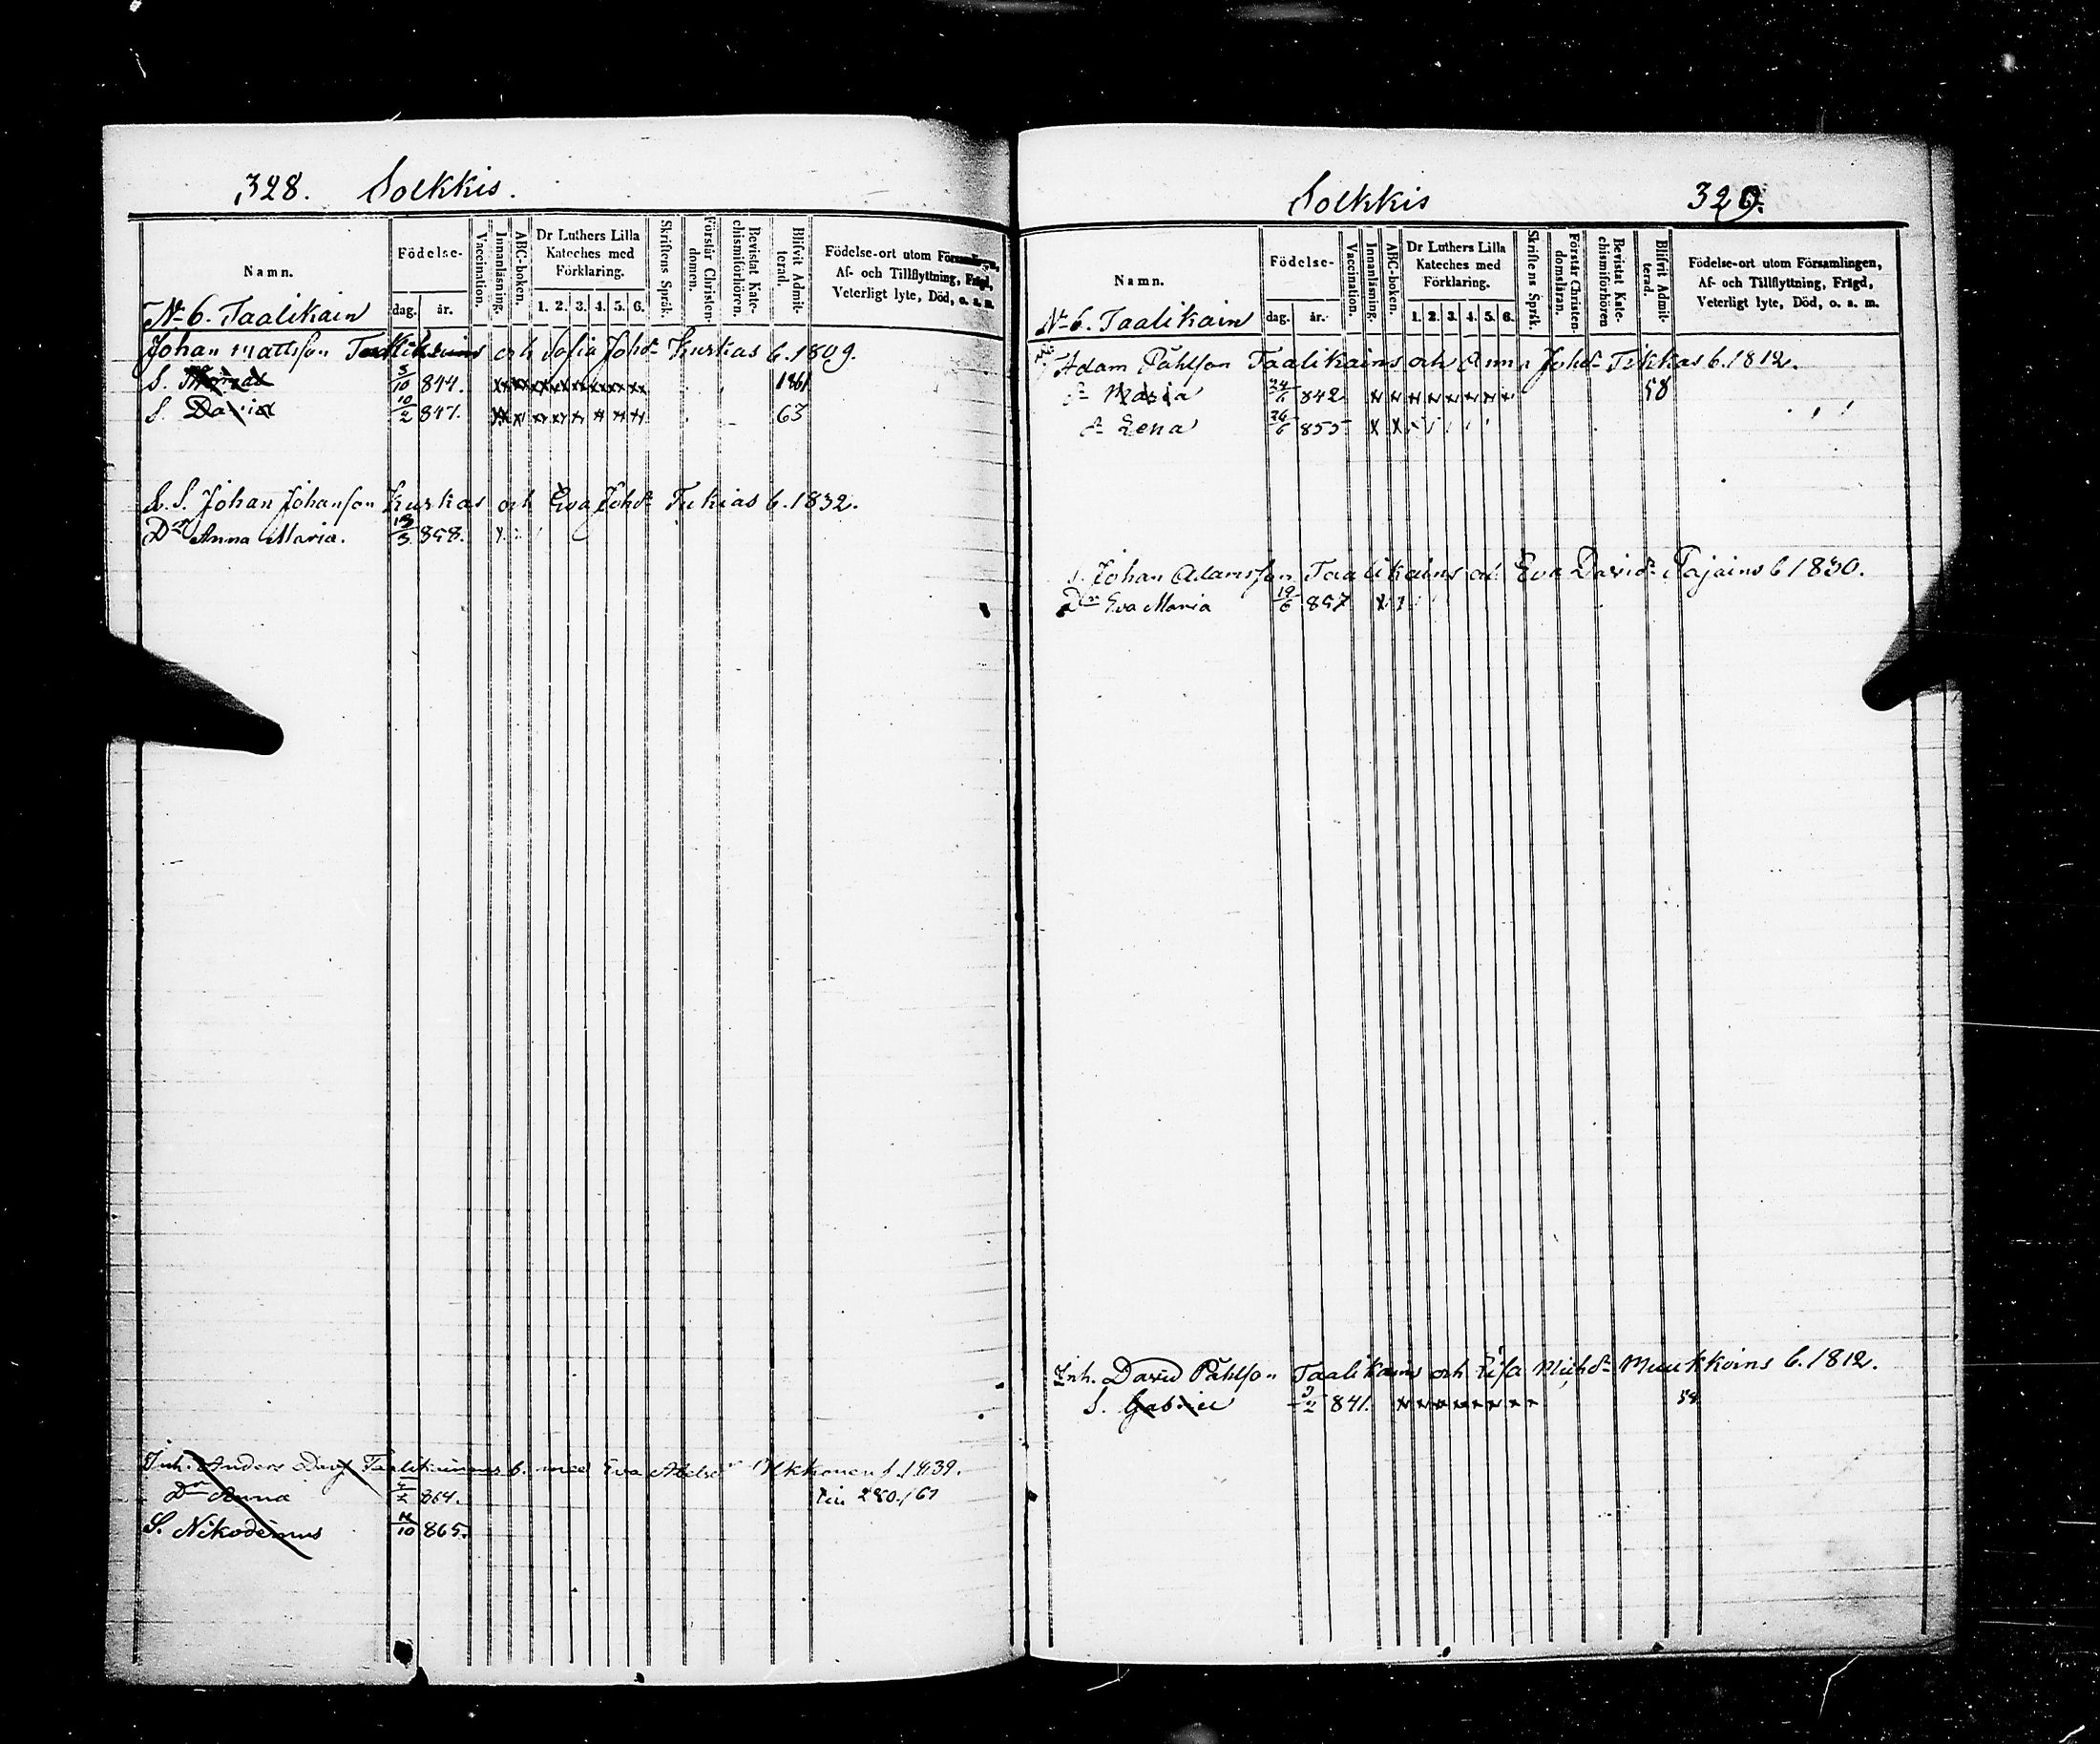 328. Solkkis.
Namn.
Födelse-
dag. år.
Vaccination.
Innanläsning.
ABC-boken.
Dr Luthers Lilla
Kateches med
Förklaring.
1. 2. 3. 4. 5. 6.
Skriftens Språk.
Förstår Christen-
domen.
Bevistat Kate-
chismiförhören.
Blifvit Admit-
terad.
Födelse-ort utom Församlingen,
Af- och Tillflyttning, Frägd,
Veterligt lyte, Död, o. s. m.
No 6. Taalikain
Johan Mattsson och Sofia Johdr Kurkas 6. 1809.
S. 5/10 844. 1861
S. David 10/2 847. 63
S. S. Johan Johansson Kurkas och Eva Johdr Tukias 6. 1832.
Dr Anna Maria. 13/3 858.
Inh. Anders Davs Taalikainens b. med Eva Abelsdr Ukkonen f. 1839.
Dr Anna 864. 280./67
S. Nikodemus 10 865.
Solkkis 329.
Namn.
Födelse-
dag. år.
Vaccination.
Innanläsning.
ABC-boken.
Dr Luthers Lilla
Kateches med
Förklaring.
1. 2. 3. 4. 5. 6.
Skriftens Språk.
Förstår Christen-
domsläran.
Bevistat Kate-
chismiförhören
Blifvit Admit-
terad.
Födelse-ort utom Församlingen,
Af- och Tillflyttning, Frägd,
Veterligt lyte, Död, o. s. m.
No 6. Taalikain
Adam Påhlson Taalikains och Anna Johdr Tikkas 6. 1812.
dr Maria 24/6 842 58
dr Lena 26/6 855
S. Johan Adamsson Taalikains och Eva Davidr Pajains 6 1830.
Dr Eva Maria 19/6 857
Inh. David Påhlson Taalikains och Lisa Michdr Muukkoins 6. 1812.
S. Gabriel 3/2 841.